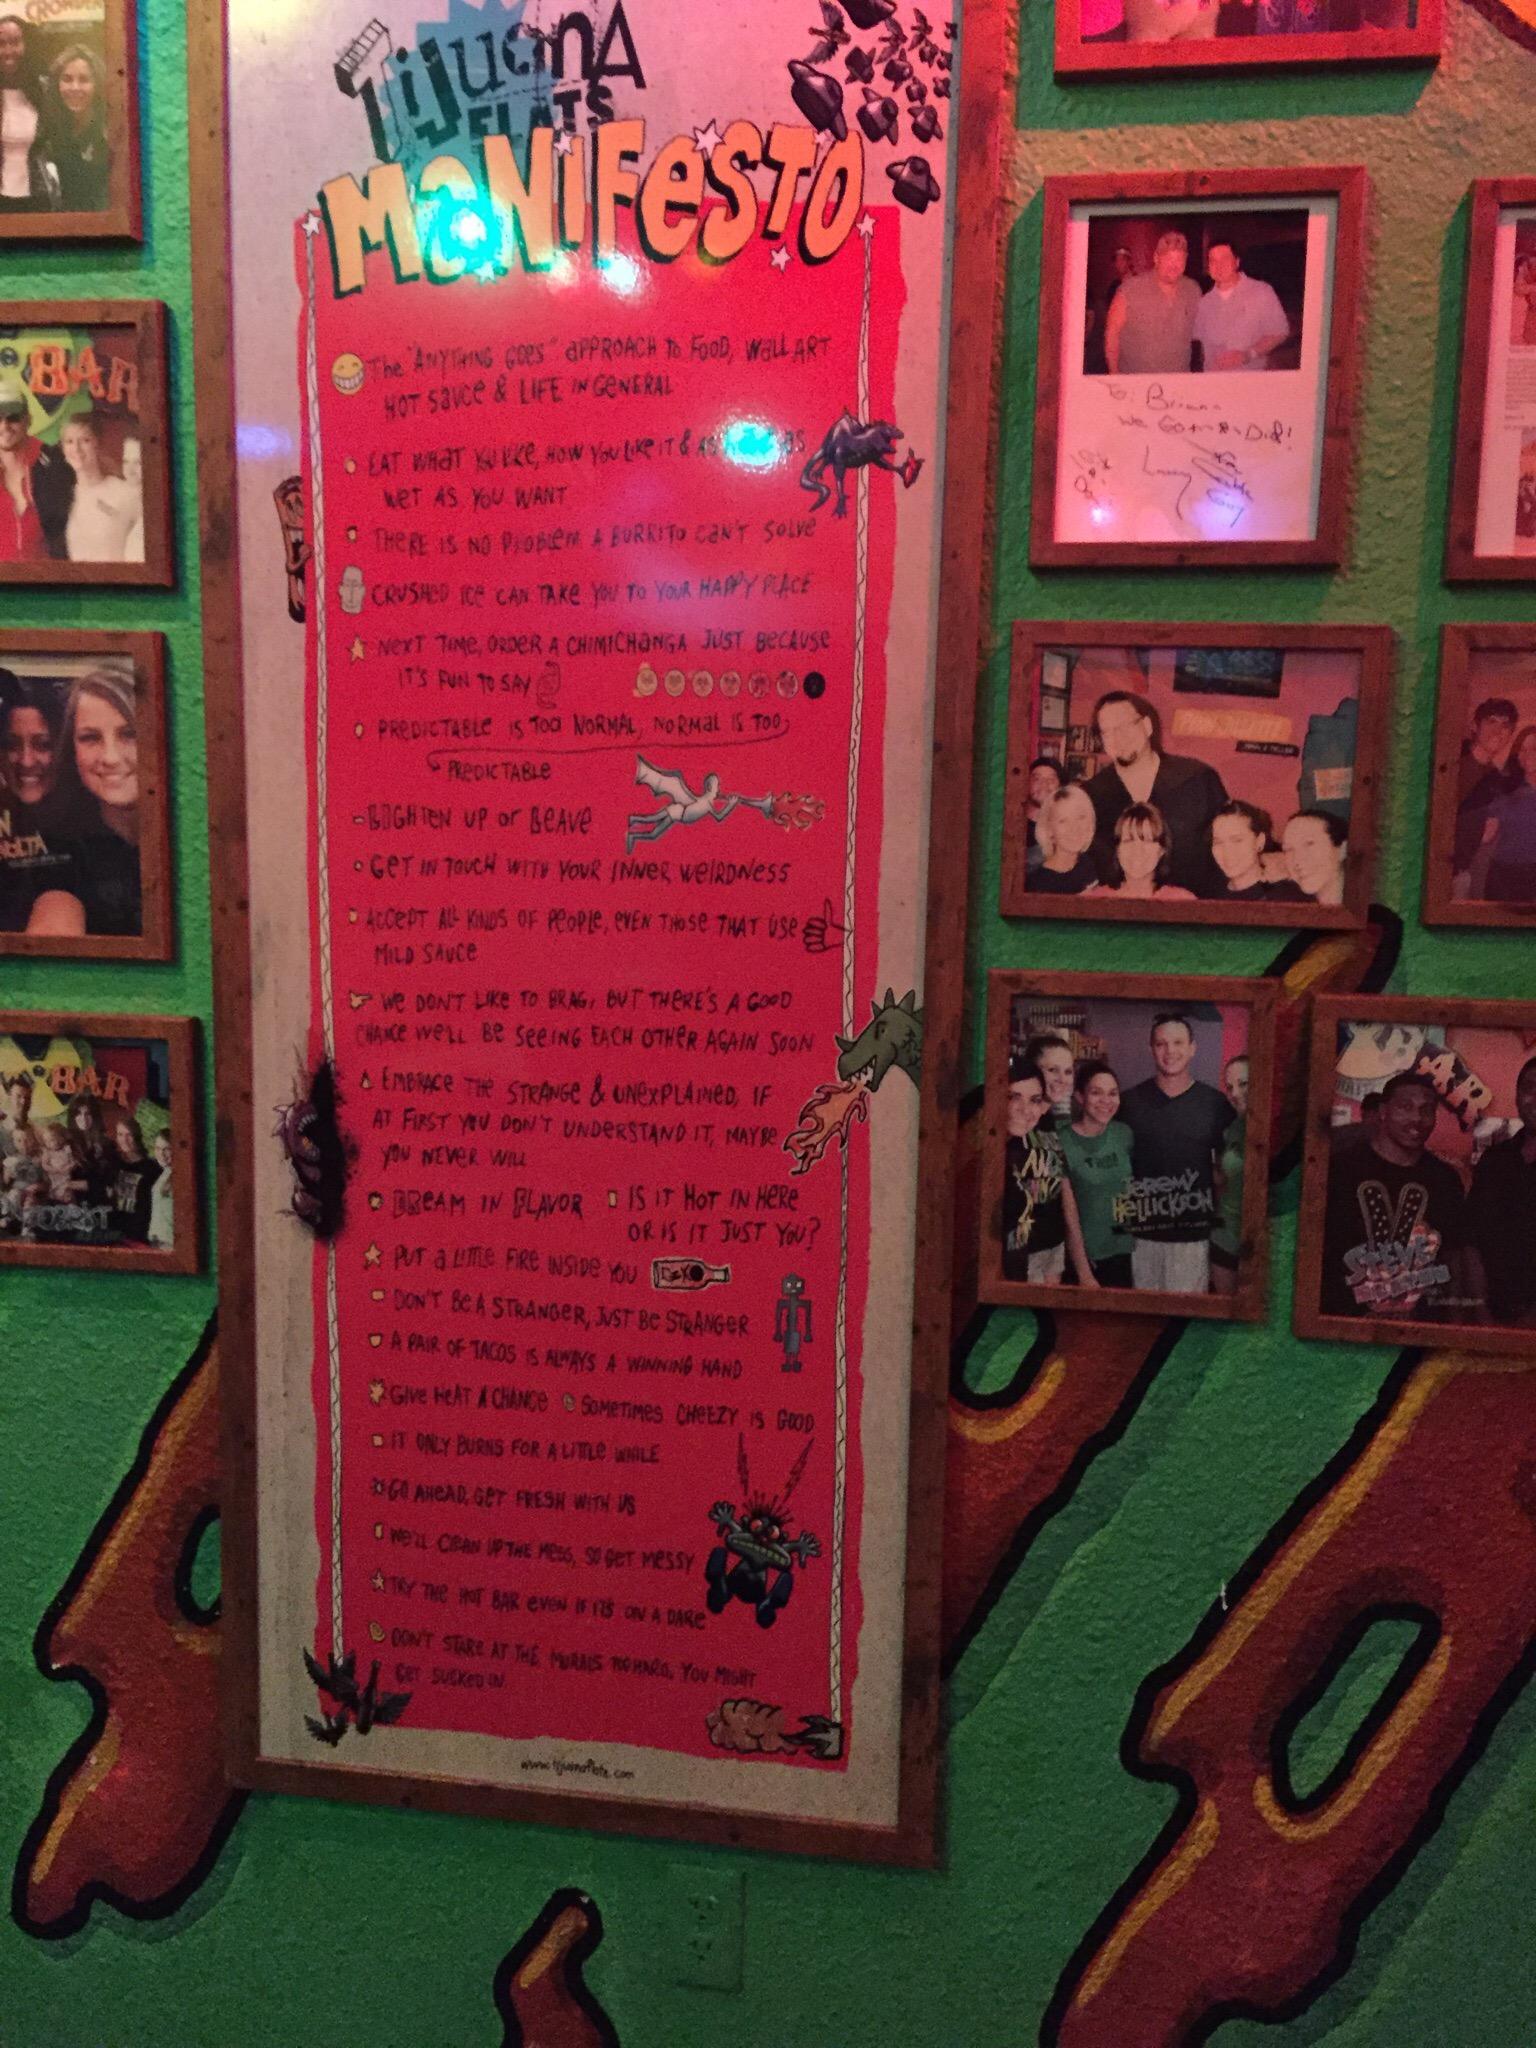 TIJUANA
FLATS
MANIFESTO
The "ANYTHING GOES" APPROACH TO FOOD, WALL ART
HOT SAUCE & LIFE IN GENERAL
EAT WHAT YOU LIKE, HOW YOU LIKE IT & AS AS
WET AS YOU WANT
THERE IS NO PROBLEM A BURRITO CAN'T SOLVE
CRUSHED ICE CAN TAKE YOU TO YOUR HAPPY PLACE
NEXT TIME, ORDER A CHIMICHANGA JUST BECAUSE
IT'S FUN TO SAY
PREDICTABLE IS TOO NORMAL, NORMAL IS TOO
PREDICTABLE
UP or
GET IN TOUCH WITH YOUR INNER WEIRDNESS
ACCEPT ALL KINDS OF PEOPLE, EVEN THOSE THAT USE
MILD SAUCE
WE DON'T LIKE TO BRAG, BUT THERE'S A GOOD
CHANCE WE'LL BE SEEING EACH OTHER AGAIN SOON
EMBRACE THE STRANGE & UNEXPLAINED, IF
AT FIRST YOU DON'T UNDERSTAND IT, MAYBE
YOU NEVER WILL
DREAM IN FLAVOR IS IT HOT IN HERE
OR IS IT JUST YOU?
PUT A LITTLE FIRE INSIDE YOU
DON'T BE A STRANGER, JUST BE STRANGER
A PAIR OF TACOS IS ALWAYS A WINNING HAND
GIVE HEAT A CHANCE SOMETIMES CHEEZY IS GOOD
IT ONLY BURNS FOR A LITTLE WHILE
GO AHEAD, GET FRESH WITH US
WE'LL CLEAN UP THE MESS, SO GET MESSY
TRY THE HOT BAR EVEN IF IT'S ON A DARE
DON'T STARE AT THE MURALS TOO HARD, YOU MIGHT
GET SUCKED IN
www.tijuanaflats.com
BAR
BAR
To: Briana
JEREMY
HELLICKSON
BAR
STEVE